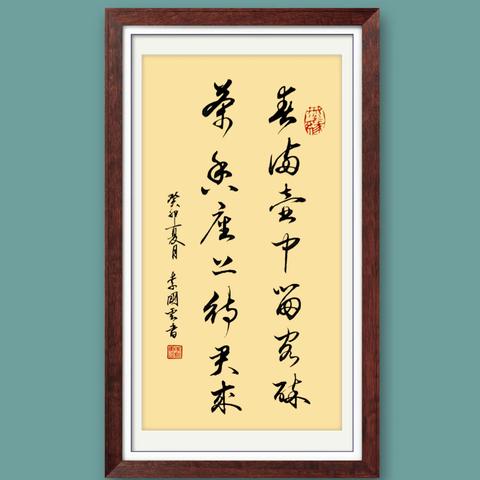 春满壶中留客醉
茶香座上待君来
癸卯夏月 李国云书